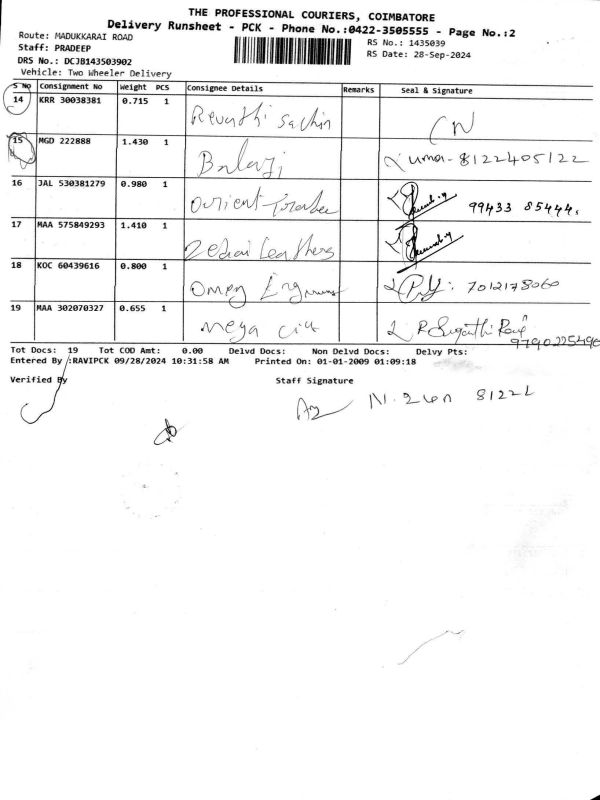 THE PROFESSIONAL COURIERS, COIMBATORE
Delivery Runsheet - PCK - Phone No.:0422-3505555 - Page No.:2
Route: MADUKKARAI ROAD
RS No.: 1435039
Staff: PRADEEP
RS Date: 28-Sep-2024
DRS No.: DCJB143503902
Vehicle: Two Wheeler Delivery
S No Consignment No Weight PCS Consignee Details Remarks Seal & Signature
14 KRR 30038381 0.715 1 Revathi Sachin CN
15 MGD 222888 1.430 1 Balaji uma-8122405122
16 JAL 530381279 0.980 1 Orient 99433 85444
17 MAA 575849293 1.410 1 Leathers
18 KOC 60439616 0.800 1 Omeg 7012178060
19 MAA 302070327 0.655 1 Mega R Suganthi
9790225490
Tot Docs: 19 Tot COD Amt: 0.00 Delvd Docs: Non Delvd Docs: Delvy Pts:
Entered By :RAVIPCK 09/28/2024 10:31:58 AM Printed On: 01-01-2009 01:09:18
Verified By Staff Signature